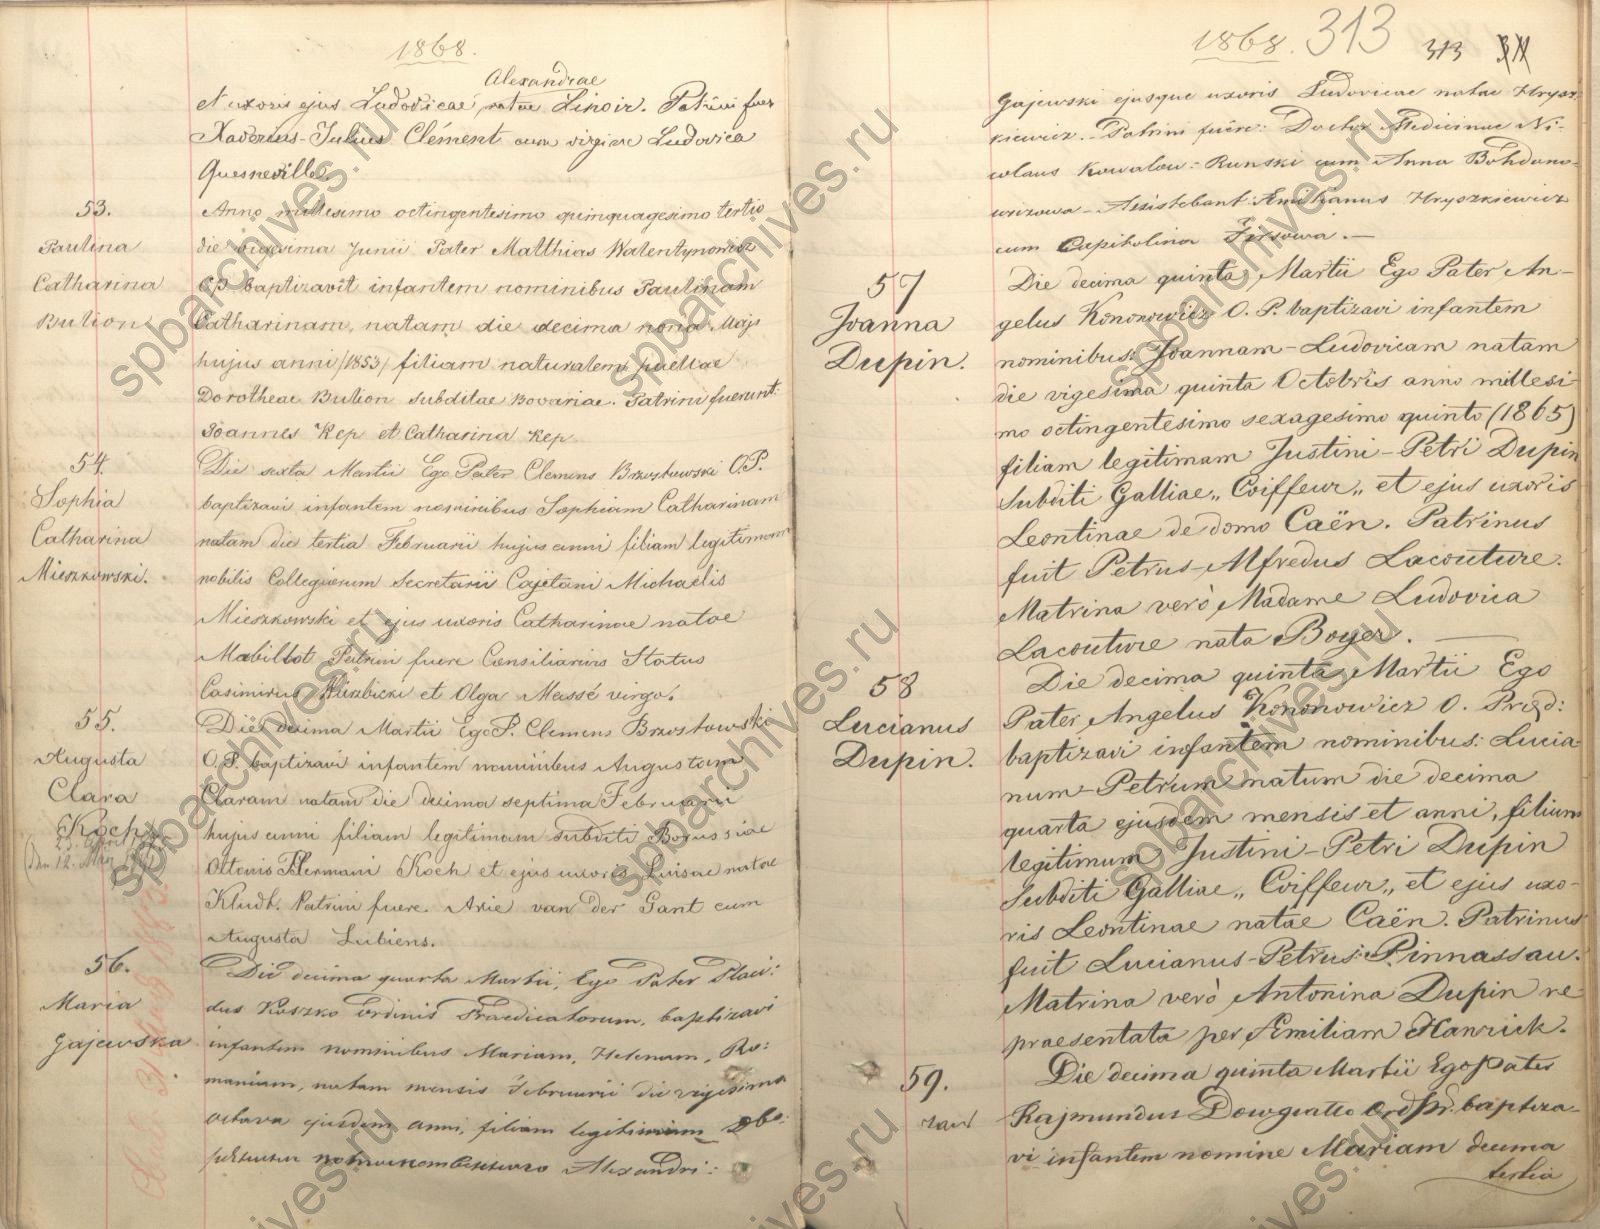 1868.
Alexandrae
et uxoris ejus Ludovicae, natae Linoir. Patrini fuer
Xaverius-Julius Clément cum virgine Ludovica
Quesneville.
53.
Paulina
Catharina
Bution
Anno millesimo octingentesimo quinquagesimo tertio
die vigesima Junii Pater Matthias Walentynowicz
O.P. baptizavit infantem nominibus Paulinam
Catharinam, natam die decima nona Maji
hujus anni /1853/ filiam naturalem puellae
Dorotheae Bution subditae Bovariae. Patrini fuerunt:
Joannes Rep et Catharina Rep
54.
Sophia
Catharina
Mieszkowski.
Die sexta Martii Ego Pater Clemens Brzostowski O.P.
baptizavi infantem nominibus Sophiam Catharinam
natam die tertia Februarii hujus anni filiam legitimam
nobilis Collegiorum Secretarii Cajetani Michaelis
Mieszkowski et ejus uxoris Catharinae natae
Mabillot Patrini fuere Consiliarius Status
Casimirus et Olga Massé virgo.
55.
Augusta
Clara
Koch
Die decima Martii Ego P. Clemens Brzostowski
O.P. baptizavi infantem nominibus Augustam
Claram natam die decima septima Februarii
hujus anni filiam legitimam subditi Borussiae
Ottonis Hermani Koch et ejus uxoris Luisae natae
Kludt. Patrini fuere. Arie van der Gant cum
Augusta Lubiens.
56.
Maria
Gajewska
Die decima quarta Martii, Ego Pater Placi:
dus Koszko Ordinis Praedicatorum, baptizavi
infantem nominibus Mariam, Helenam, Ro:
maniam, natam mensis Februarii die vigesima
octava ejusdem anni, filiam legitimam
Alexandri:
1868. 313 313
Gajewski ejusque uxoris Ludovicae natae Hrysz
kiewicz. Patrini fuêre: Doctor Medicinae Ni-
colaus Kowalew-Runski cum Anna Bohdano-
wizowa - Assistebant: Emilianus Hryszkiewicz
cum Capitolina Firsowa. —
57
Joanna
Dupin.
Die decima quinta Martii Ego Pater An-
gelus Kononowicz O. P. baptizavi infantem
nominibus: Joannam-Ludovicam natam
die vigesima quinta Octobris anno millesi-
mo octingentesimo sexagesimo quinto (1865)
filiam legitimam Justini-Petri Dupin
Subditi Galliae „Coiffeur„ et ejus uxoris
Leontinae de domo Caën. Patrinus
fuit Petrus-Alfredus Lacouture.
Matrina verò Madame Ludovica
Lacouture nata Boyer. —
58
Lucianus
Dupin.
Die decima quinta Martii Ego
Pater Angelus Kononowicz O. Præd:
baptizavi infantem nominibus: Lucia-
num-Petrum natum die decima
quarta ejusdem mensis et anni, filium
legitimum Justini-Petri Dupin
Subditi Galliae „Coiffeur„ et ejus uxo-
ris Leontinae natae Caën. Patrinus
fuit Lucianus-Petrus: Pinnassau.
Matrina verò Antonina Dupin re
praesentata per Æmiliam Hanrick.
59.
Die decima quinta Martii Ego Pater
Rajmundus Dowgiatto Ord Pr. baptiza-
vi infantem nomine Mariam decima
tertia
spbarchives.ru